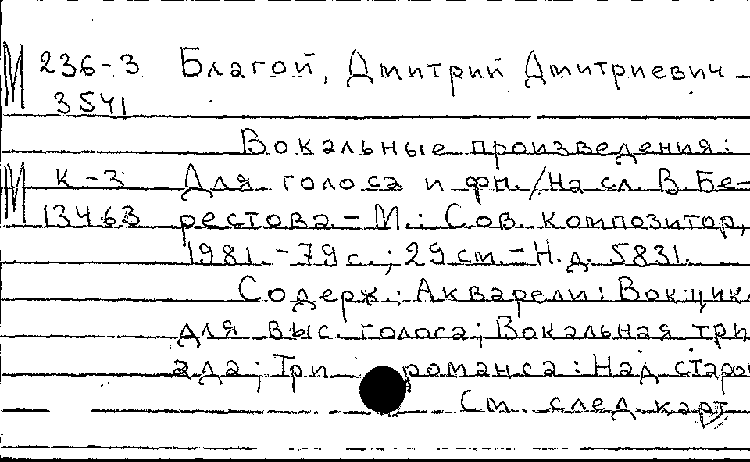 М 236-3 Благой, Дмитрий Дмитриевич –
3541
Вокальные произведения:
М К-3 Для голоса и фп. / На сл. В. Бе-
13463 рестова. – М.: Сов. композитор,
1981. – 79 с.; 29 см. – Н.д. 5831.
Содерж.: Акварели: Вок. цикл
для выс. голоса; Вокальная три-
ада; Три романса: Над старой
См. след. карт